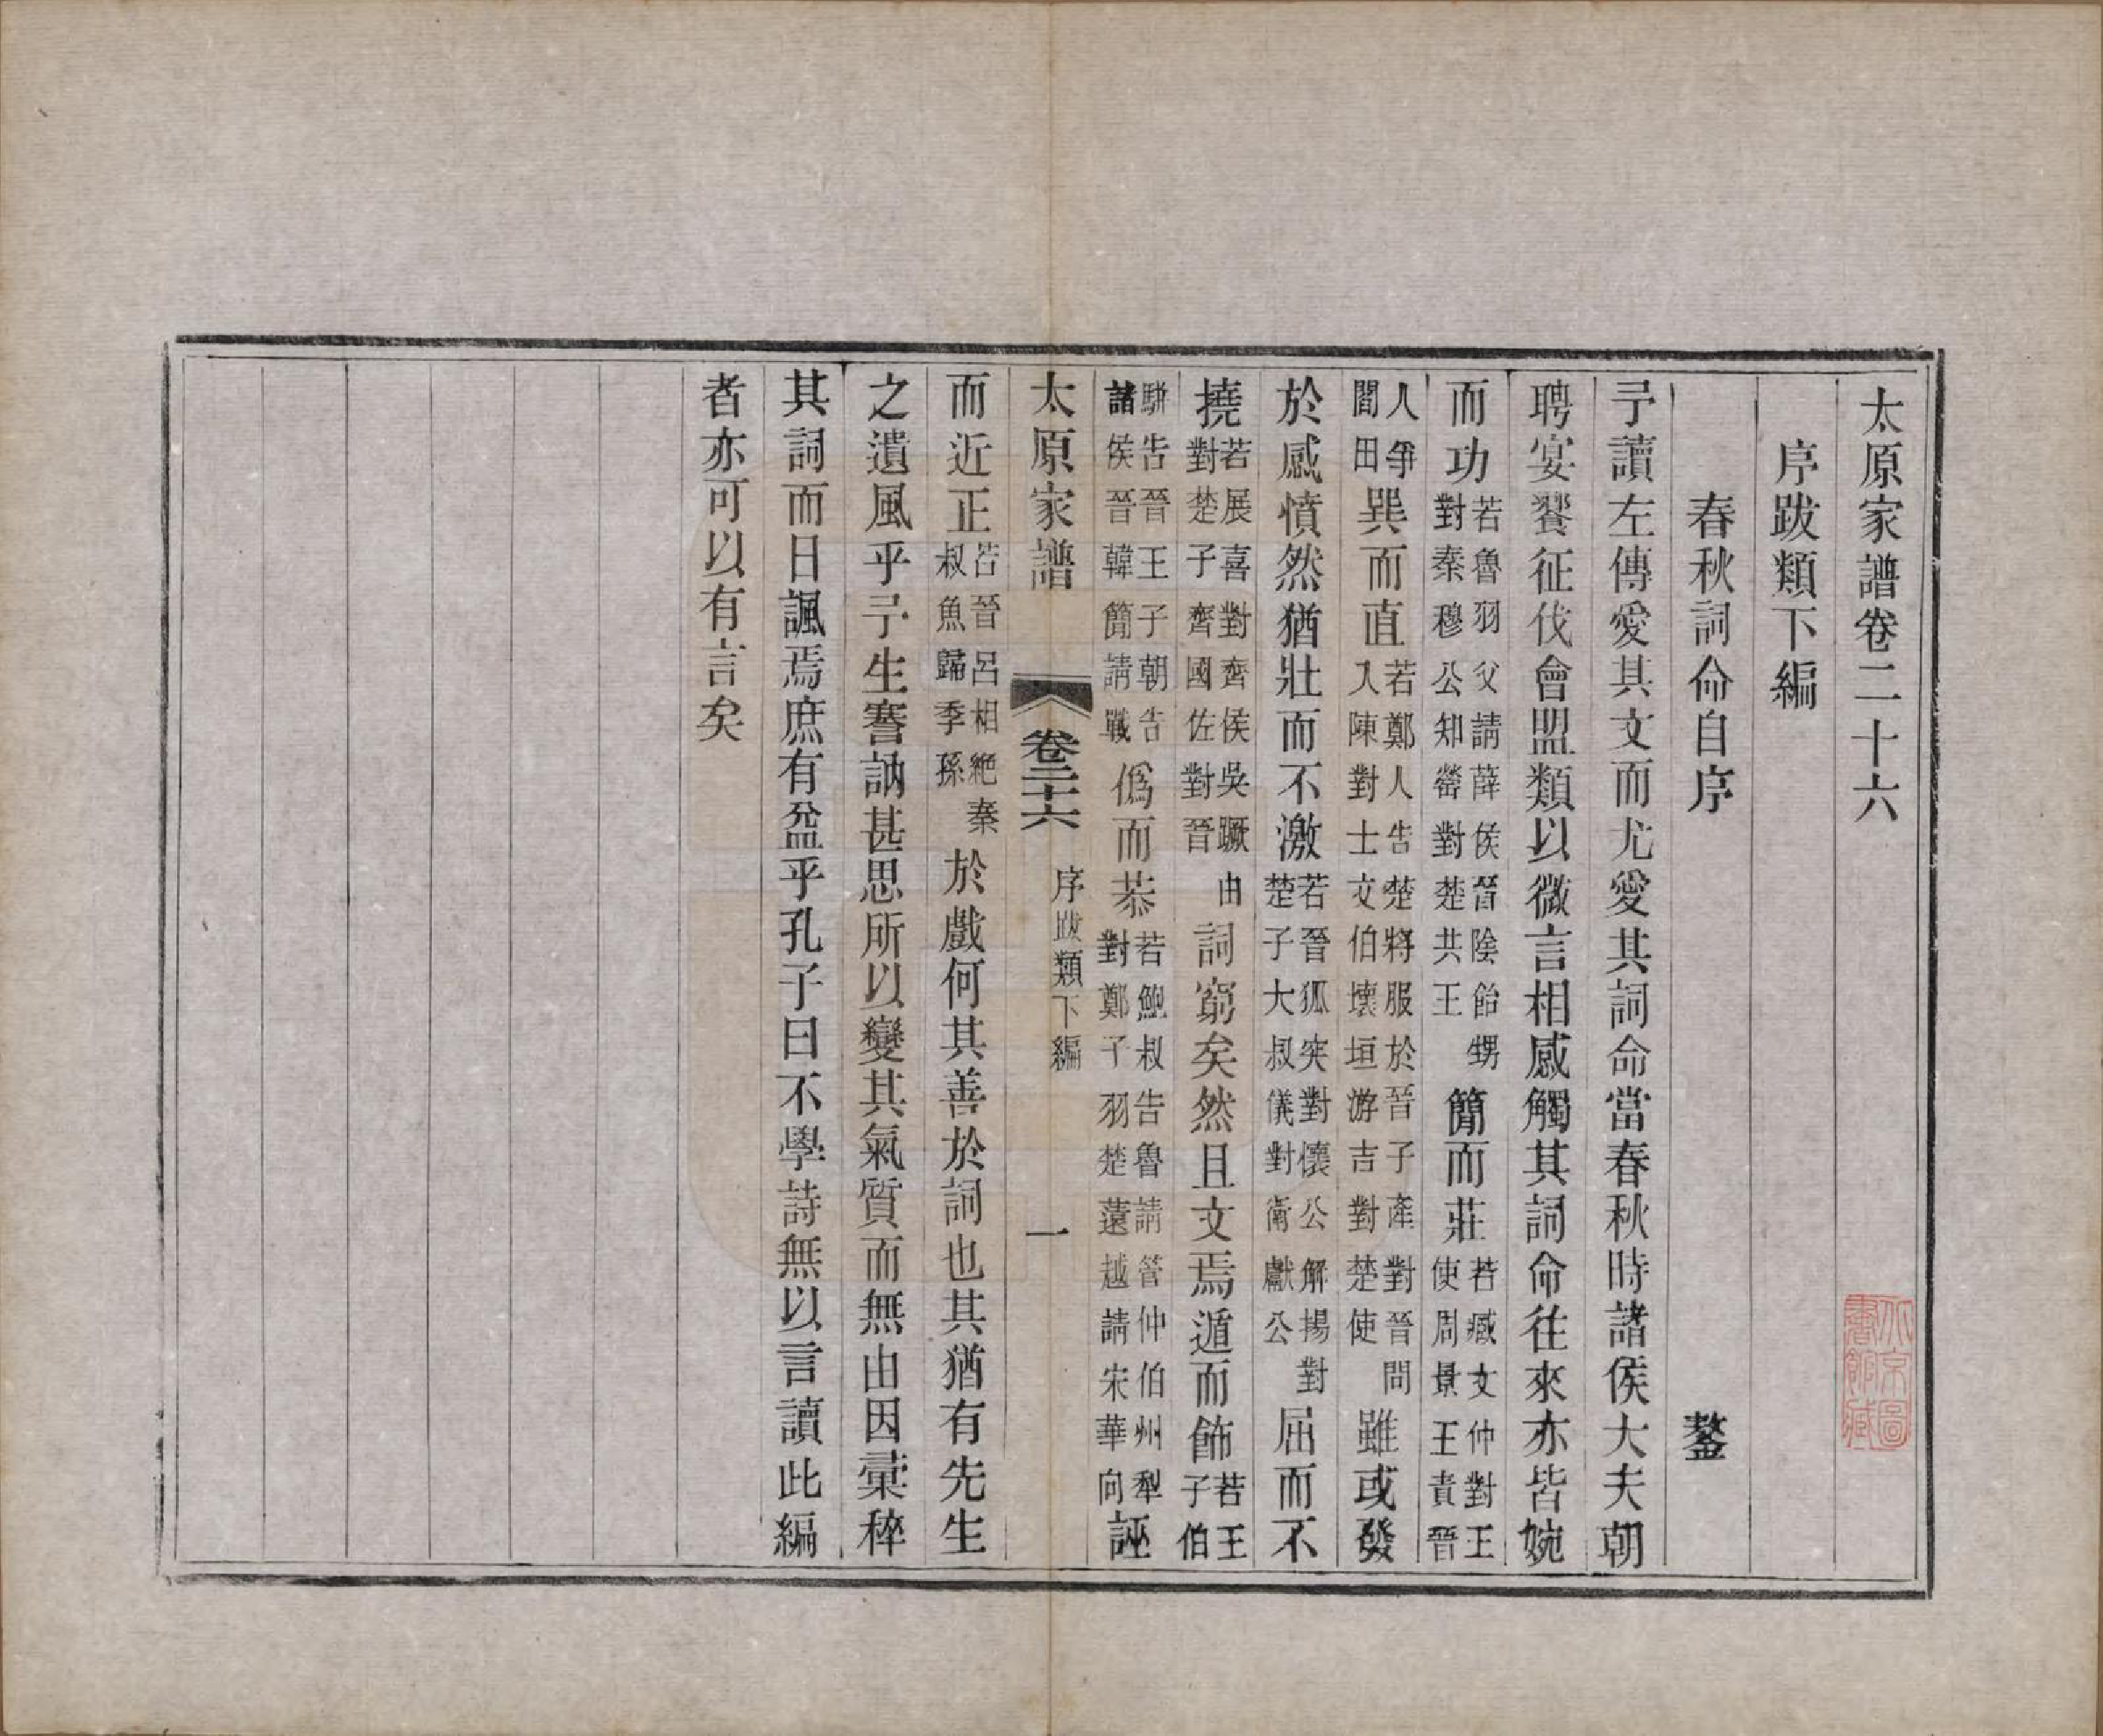 太原家譜卷二十六
序跋類下編
春秋詞命自序 鏊
予讀左傳愛其文而尤愛其詞命當春秋時諸侯大夫朝
聘宴饗征伐會盟類以微言相感觸其詞命往來亦皆婉
而功若魯羽父請薛侯晉陰飴甥對秦穆公知罃對楚共王簡而莊若臧文仲對王使周景王責晉
人爭閻田巽而直若鄭人告楚將服於晉子產對晉問入陳對士文伯壞垣游吉對楚使雖或發
於感憤然猶壯而不激若晉狐突對懷公解揚對楚子大叔儀對衛獻公屈而不
撓若展喜對齊侯吳蹶由對楚子齊國佐對晉詞窮矣然且文焉遁而飾若王子伯
駢告晉王子朝告諸侯晉韓簡請戰僞而恭若鮑叔告魯請管仲伯州犁對鄭子羽楚薳越請宋華向誣
太原家譜 卷二十六 序跋類下編 一
而近正若晉呂相絕秦叔魚歸季孫於戲何其善於詞也其猶有先生
之遺風乎予生謇訥甚思所以變其氣質而無由因彙稡
其詞而日諷焉庶有益乎孔子曰不學詩無以言讀此編
者亦可以有言矣
北京圖書館藏